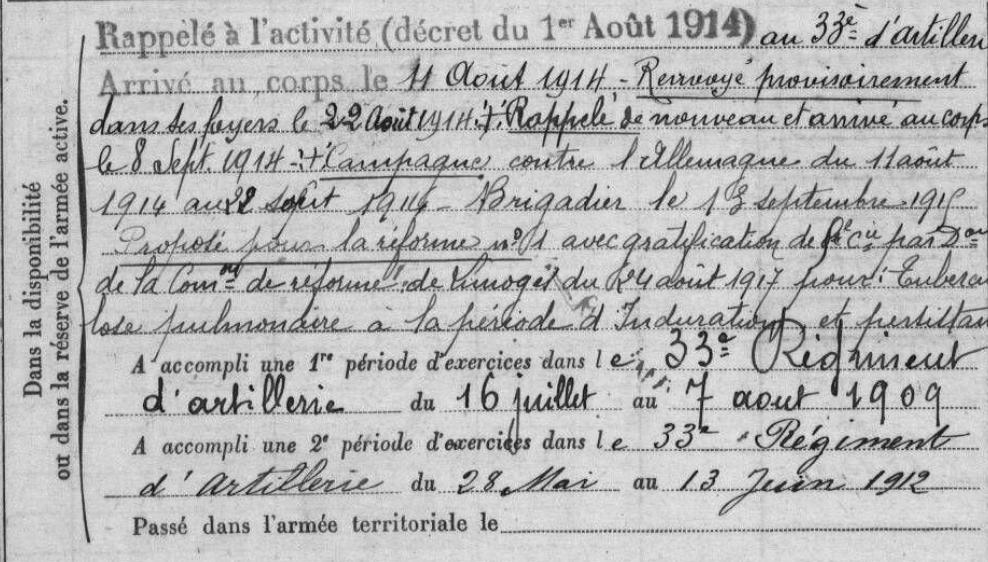 Dans la disponibilité
ou dans la réserve de l'armée active.
Rappelé à l'activité (décret du 1er Août 1914) au 33e d'artillerie
Arrivé au corps le 11 Août 1914 - Renvoyé provisoirement
dans ses foyers le 22 Août 1914 ./. Rappelé de nouveau et arrivé au corps
le 8 Sept. 1914 - Campagne contre l'Allemagne du 11 août
1914 au 22 août 1914 - Brigadier le 13 septembre 1915
Proposé pour la réforme no 1 avec gratification de par Don
de la Comon de réforme de Limoges du 24 août 1917 pour: Tubercu
lose pulmonaire à la période d'Induration et persistan
A accompli une 1re période d'exercices dans le 33e Régiment
d'artillerie du 16 juillet au 7 aout 1909
A accompli une 2e période d'exercices dans le 33e Régiment
d'Artillerie du 28 Mai au 13 Juin 1912
Passé dans l'armée territoriale le